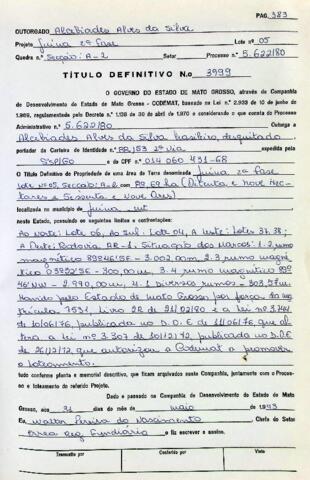 PAG. 383
OUTORGADO Alcebiades Alves da Silva
Projeto Juina 2ª Fase Lote nº 05
Quadra nº Secção: A-2 Setor Processo nº 5.622/80
TÍTULO DEFINITIVO N.o 3999
O GOVERNO DO ESTADO DE MATO GROSSO, através da Companhia
de Desenvolvimento do Estado de Mato Grosso - CODEMAT, baseado na Lei n.º 2.909 de 10 de junho de
1969, regulamentada pelo Decreto n.º 1.138 de 30 de abril de 1970 e considerando o que consta do Processo
Administrativo nº 5.622/80 Outorga a
Alcebiades Alves da Silva brasileiro, desquitado
portador da Carteira de Identidade n.º 88.153 2ª via expedida pela
SSP/GO e do CPF nº 014 060 431-68
O Título Definitivo de Propriedade de uma área de Terra denominada Juina 2ª Fase
Lote nº 05, Secção: A-2 com 89,69 ha (Oitenta e nove Hec-
tares e Sessenta e Nove Ares)
localizada no município de Juina mt
neste Estado, possuindo os seguintes limites e confrontações:
Ao Norte: Lote 06, Ao Sul: Lote 04, A Leste: Lotes 37, 38;
A Oeste: Rodovia AR-1. Situação dos Marcos: 1.2 rumo
magnético 89º46'SE - 3.002,00m, 2.3 rumo magné
tico - 300,00m, 3.4 rumo magnético 89º
46'NW - 2.990,00m, 4.1 Diversos rumos - 303,57m.
Havido pelo Estado de Mato Grosso por força da ma
trícula 7531, Livro 28 de 21/02/80 e a Lei nº
10/06/76, publicada no D.O.E de 11/06/76, que al
tera a Lei nº 3.307 de 10/12/72, publicada no D.O.E
de 26/12/72, que autorizou a Codemat a promover
o Loteamento.
tudo conforme planta e memorial descritivo, que ficam arquivados nesta Companhia, juntamente com o Proces-
so e loteamento do referido Projeto.
Dado e passado na Companhia de Desenvolvimento do Estado de Mato
Grosso, aos 31 dias do mês de maio de 1983
Eu Walton Pereira do Nascimento Chefe do Setor
Area Reg. Fundiário o fiz escrever e assino.
Transcrito por Conferido por Visto